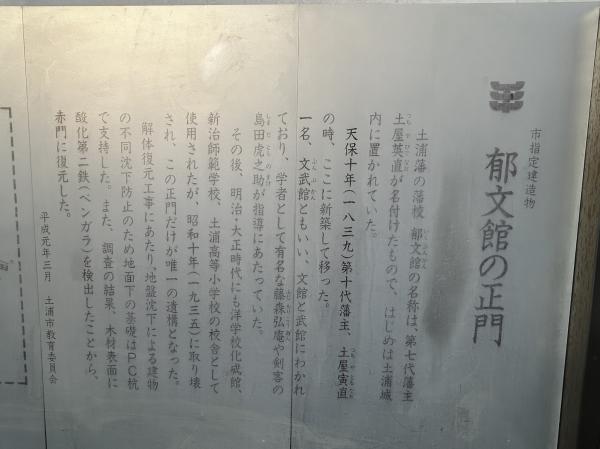 市指定建造物
郁文館の正門
土浦藩の藩校 郁文館の名称は、第七代藩主
土屋英直が名付けたもので、はじめは土浦城
内に置かれていた。
天保十年(一八三九)第十代藩主、土屋寅直
の時、ここに新築して移った。
一名、文武館ともいい、文館と武館にわかれ
ており、学者として有名な藤森弘庵や剣客の
島田虎之助が指導にあたっていた。
その後、明治・大正時代にも洋学校化成館、
新治師範学校、土浦高等小学校の校舎として
使用されたが、昭和十年(一九三五)に取り壊
され、この正門だけが唯一の遺構となった。
解体復元工事にあたり、地盤沈下による建物
の不同沈下防止のため地面下の基礎はPC杭
で支持した。また、調査の結果、木材表面に
酸化第二鉄(ベンガラ)を検出したことから、
赤門に復元した。
平成元年三月 土浦市教育委員会